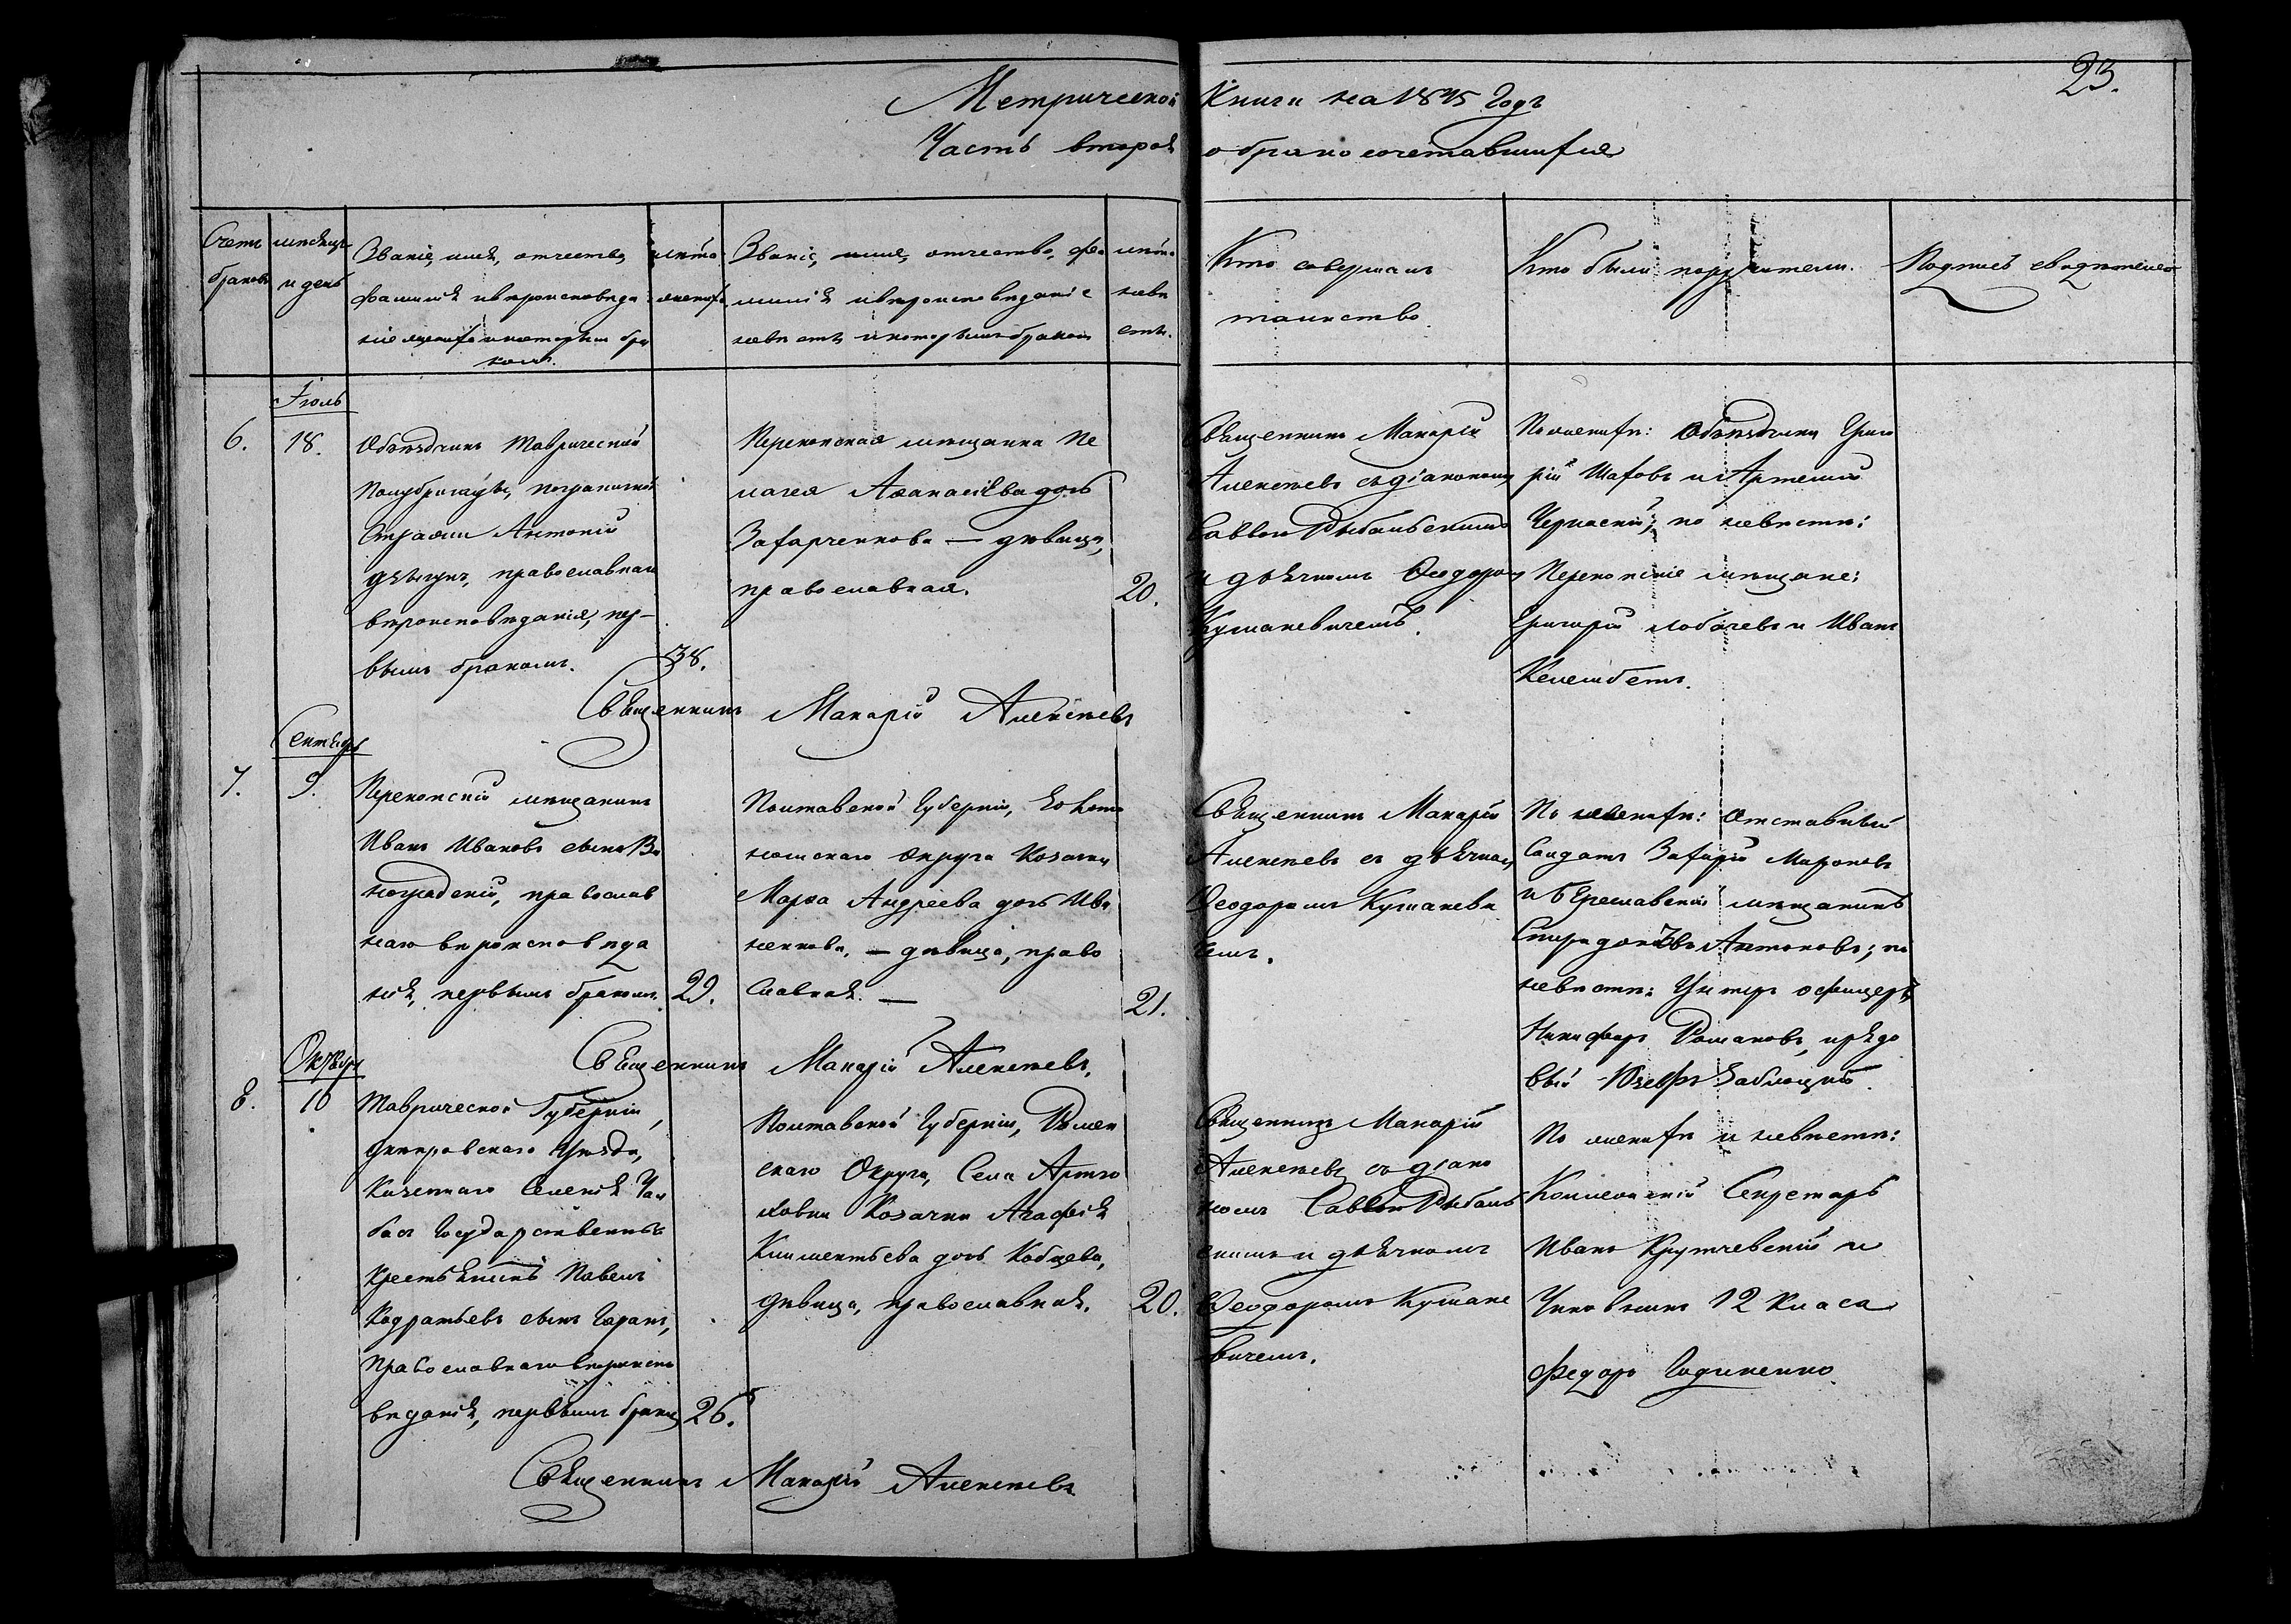 23.
Метрической Книги на 1845 Годъ
Часть вторая о бракосочетавшихся
Счетъ
браковъ
мѣсяцъ
и день
Званіе, имя, отчество,
фамилія и вѣроисповѣда
ніе жениха и которымъ бра
комъ.
лѣта
жениха
Званіе, имя, отчество, фа
милія и вѣроисповѣданіе
невѣсты, и которымъ бракомъ
лѣта
невѣ
сты.
Кто совершалъ
таинство
Кто были поручители.
Подпись свидѣтелей
Іюль
6.
18.
Объѣздчикъ Таврической
Полубригады, пограничной
Стражи Антоній
православнаго
вѣроисповѣданія, пер-
вымъ бракомъ.
38.
Перекопская мѣщанка Пе
лагея Аѳанасіева дочь
Захарченкова — дѣвица,
православная.
20.
Священникъ Макарій
Алексѣевъ съ діакономъ
Саввою Рыбальскимъ
и дьячкомъ Ѳеодоромъ
Кушакевичемъ.
По женихѣ: Объѣздчики Григо
рій Шаховъ и Артемій
Черкаскій; по невѣстѣ:
Перекопскіе мѣщане:
Григорій Лобачевъ и Иванъ
Келешбетъ.
Священникъ Макарій Алексѣевъ
Сентябрь
7.
9.
Перекопскій мѣщанинъ
Иванъ Ивановъ сынъ Ви
ноградскій, православ
наго вѣроисповѣда
нія, первымъ бракомъ.
29.
Полтавской Губерніи,
округа Козачка
Марѳа Андреева дочь Ива
ненкова, — дѣвица, право
славная. —
21.
Священникъ Макарій
Алексѣевъ съ дьячкомъ
Ѳеодоромъ Кушакеви
чемъ.
По женихѣ: Отставный
Солдатъ Захарій Мироновъ
и Береславскій мѣщанинъ
Антоновъ; по
невѣстѣ: Унтеръ офицеръ
Никифоръ Романовъ, и рядо
вый Юзефъ Заблоцкій.
Священникъ Макарій Алексѣевъ.
Октября
8.
10
Таврической Губерніи,
Днепровскаго Уѣзда,
Казеннаго Селенія Чал
басъ Государственный
Крестьянинъ Павелъ
Кодратьевъ сынъ
Православнаго вѣроиспо
вѣданія, первымъ бракомъ
26.
Полтавской Губерніи, Ромен
скаго Округа, Села Артю
ховки Козачка Агафія
Климентьева дочь Кобцева,
дѣвица, православная.
20.
Священникъ Макарій
Алексѣевъ съ діако
номъ Саввою Рыбаль
скимъ и дьячкомъ
Ѳеодоромъ Кушаке
вичемъ.
По женихѣ и невѣстѣ:
Коллежскій Секретарь
Иванъ Крутчевскій и
Чиновникъ 12 класа
Федоръ Годиненко.
Священникъ Макарій Алексѣевъ